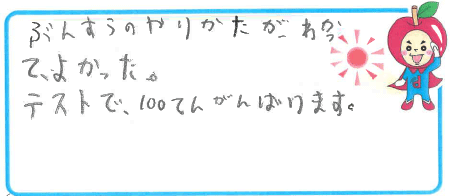 ぶんすうのやりかたが、わかっ
て、よかった。
テストで、100てんがんばります。